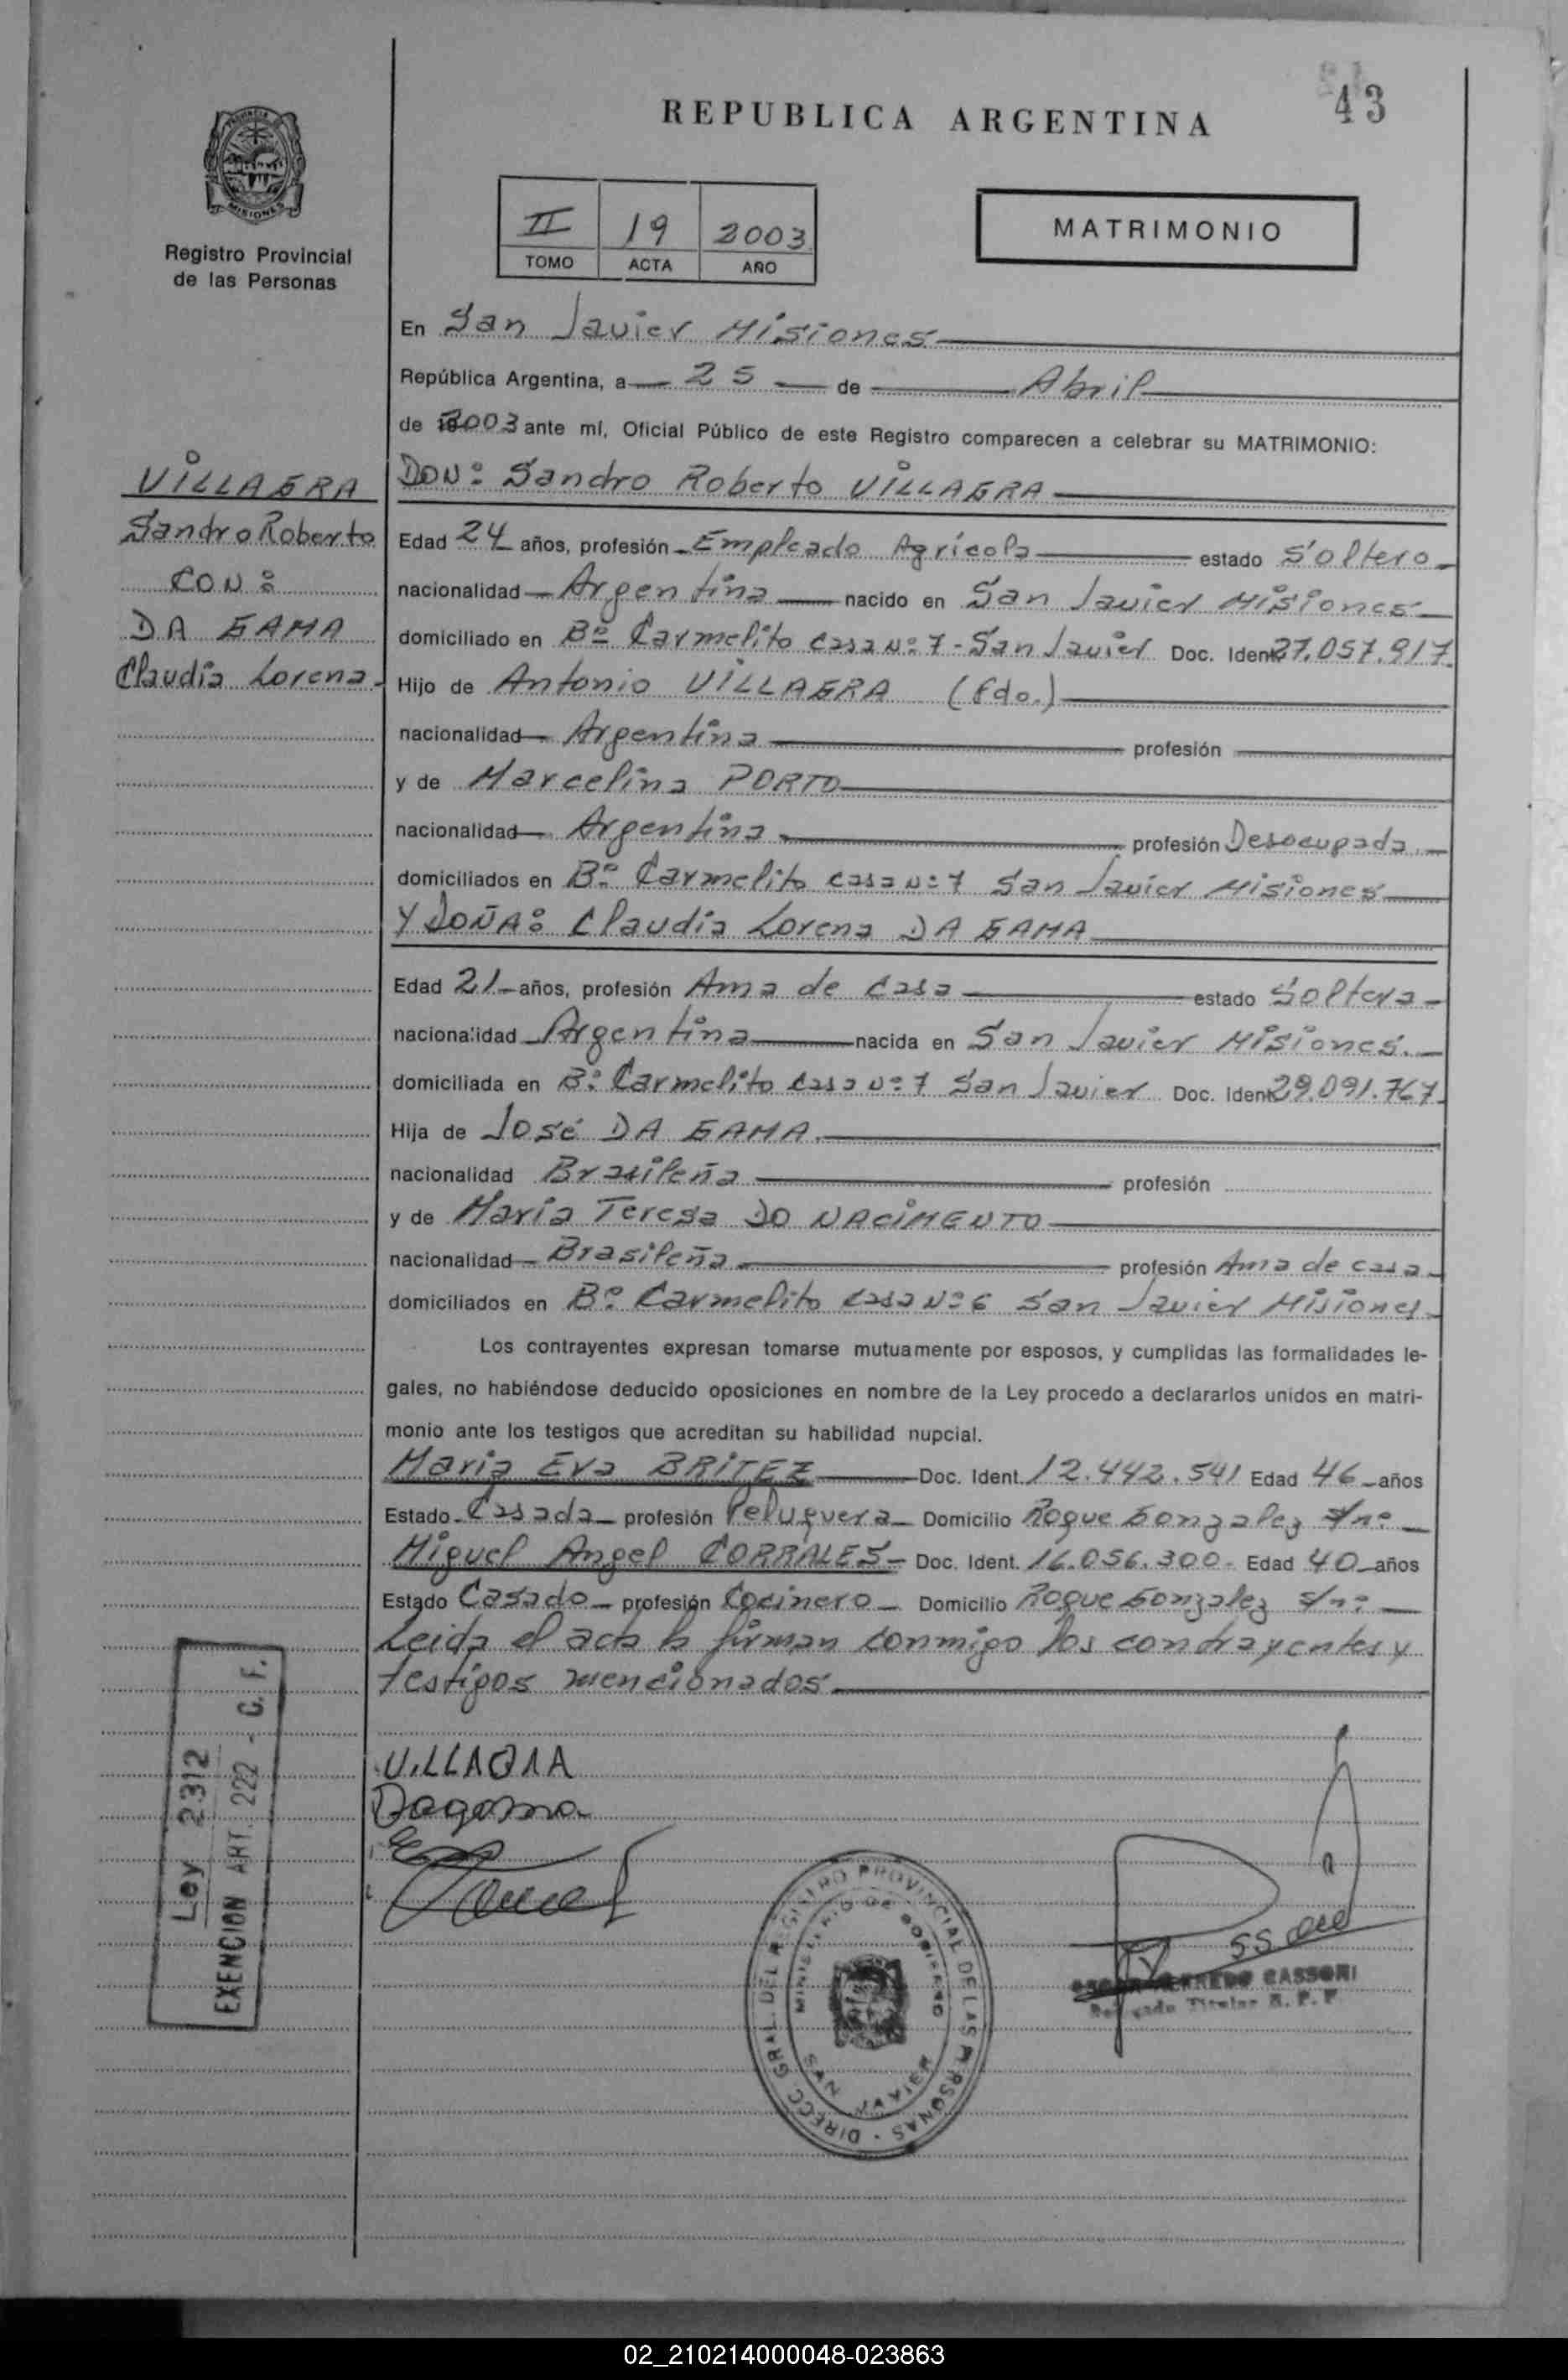 43
REPUBLICA ARGENTINA
PROVINCIA DE
MISIONES
Registro Provincial
de las Personas
II 19 2003
TOMO ACTA AÑO
MATRIMONIO
En San Javier Misiones
República Argentina, a 25 de Abril
de 2003 ante mí, Oficial Público de este Registro comparecen a celebrar su MATRIMONIO:
VILLAGRA
Sandro Roberto
CON:
DA GAMA
Claudia Lorena
DON: Sandro Roberto VILLAGRA
Edad 24 años, profesión Empleado Agrícola estado Soltero
nacionalidad Argentina nacido en San Javier Misiones
domiciliado en Bº Carmelito casa Nº 7 - San Javier Doc. Ident 27.057.917
Hijo de Antonio VILLAGRA (fdo.)
nacionalidad Argentina profesión
y de Marcelina PORTO
nacionalidad Argentina profesión Desocupada
domiciliados en Bº Carmelito casa Nº 7 San Javier Misiones
Y DOÑA: Claudia Lorena DA GAMA
Edad 21 años, profesión Ama de Casa estado Soltera
nacionalidad Argentina nacida en San Javier Misiones.
domiciliada en Bº Carmelito casa Nº 7 San Javier Doc. Ident 29.091.767
Hija de José DA GAMA
nacionalidad Brasileña profesión
y de María Teresa DO NACIMENTO
nacionalidad Brasileña profesión Ama de casa
domiciliados en Bº Carmelito casa Nº 6 San Javier Misiones
Los contrayentes expresan tomarse mutuamente por esposos, y cumplidas las formalidades le-
gales, no habiéndose deducido oposiciones en nombre de la Ley procedo a declararlos unidos en matri-
monio ante los testigos que acreditan su habilidad nupcial.
Maria Eva BRITEZ Doc. Ident. 12.442.541 Edad 46 años
Estado Casada profesión Peluquera Domicilio Roque Gonzalez s/nº
Miguel Angel CORRALES Doc. Ident. 16.056.300 Edad 40 años
Estado Casado profesión Cocinero Domicilio Roque Gonzalez s/nº
Leida el acta la firman conmigo los contrayentes y
testigos mencionados
Ley 2312
EXENCION ART. 222 - C. F.
VILLAGRA
Dagama
DIRECC GRAL. DEL REGISTRO PROVINCIAL DE LAS PERSONAS
MINISTERIO DE GOBIERNO
SAN JAVIER
CASSONI
Delegado Titular R. P. P
02_210214000048-023863